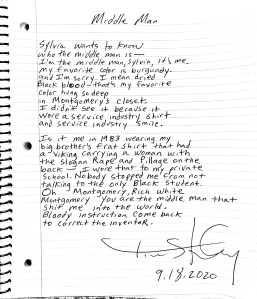 Middle Man
Sylvia wants to know
who the middle man is—
I'm the middle man, Sylvia, it's me
my favorite color is burgundy
and I'm sorry I mean dried
Black blood—that's my favorite
color hung so deep
in Montgomery's closets
I didn't see it because it
wore a service industry shirt
and service industry smile.
Is it me in 1983 wearing my
big brother's frat shirt that had
a viking carrying a woman with
the slogan Rape and Pillage on the
back— I wore that to my private
School. Nobody stopped me from not
talking to the only Black Student.
Oh Montgomery, Rich White
Montgomery You are the middle man that
shit me into the world.
Bloody instruction come back
to correct the inventor.
9.18.2020